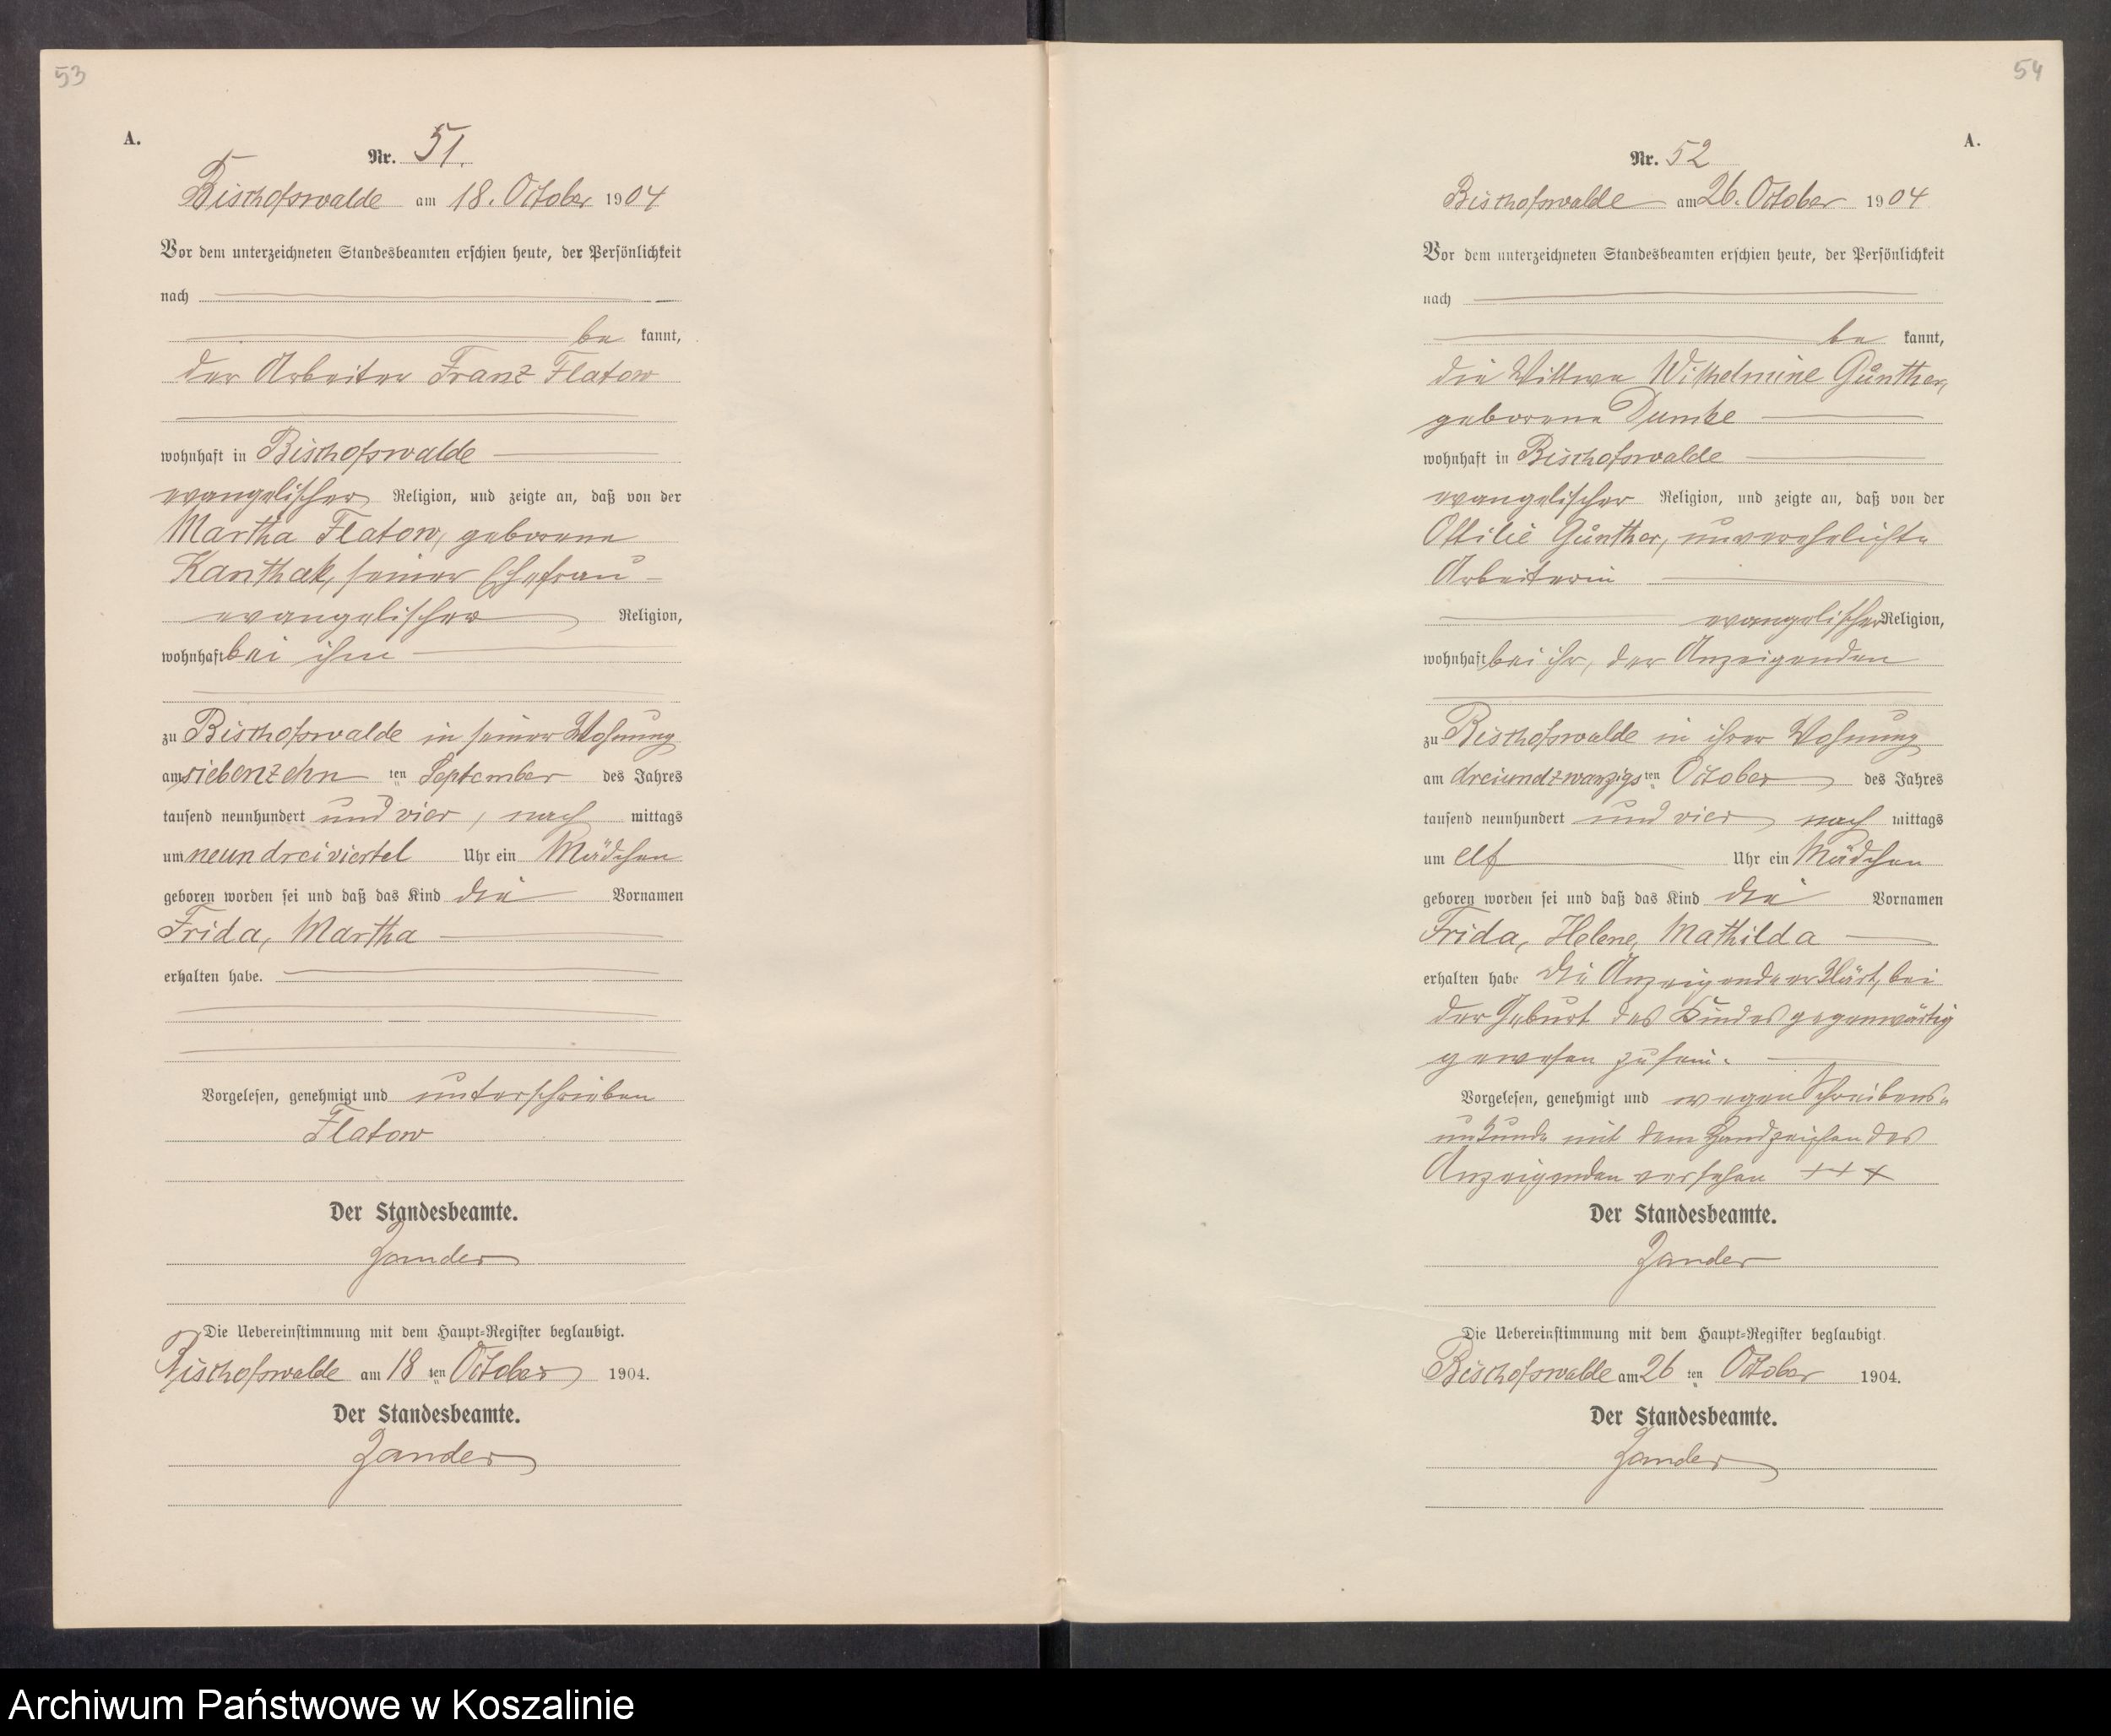 53
A.
Nr. 51.
Bischofswalde am 18. October 1904
Vor dem unterzeichneten Standesbeamten erschien heute, der Persönlichkeit
nach
be kannt,
der Arbeiter Franz Flatow
wohnhaft in Bischofswalde
evangelischer Religion, und zeigte an, daß von der
Martha Flatow, geborene
Kanthak, seiner Ehefrau
evangelischer Religion,
wohnhaft bei ihm
zu Bischofswalde in seiner Wohnung
am siebenzehn ten September des Jahres
tausend neunhundert und vier, nach mittags
um neun dreiviertel Uhr ein Mädchen
geboren worden sei und daß das Kind die Vornamen
Frida, Martha
erhalten habe.
Vorgelesen, genehmigt und unterschrieben
Flatow
Der Standesbeamte.
Zander
Die Uebereinstimmung mit dem Haupt-Register beglaubigt.
Bischofswalde am 18 ten October 1904.
Der Standesbeamte.
Zander
54
A.
Nr. 52
Bischofswalde am 26. October 1904
Vor dem unterzeichneten Standesbeamten erschien heute, der Persönlichkeit
nach
be kannt,
die Wittwe Wilhelmine Günther,
geborene Dumke
wohnhaft in Bischofswalde
evangelischer Religion, und zeigte an, daß von der
Ottilie Günther, unverehelichte
Arbeiterin
evangelischer Religion,
wohnhaft bei ihr, der Anzeigenden
zu Bischofswalde in ihrer Wohnung
am dreiundzwanzigs ten October des Jahres
tausend neunhundert und vier nach mittags
um elf Uhr ein Mädchen
geboren worden sei und daß das Kind die Vornamen
Frida, Helene, Mathilda
erhalten habe die Anzeigende erklärt, bei
der Geburt des Kindes gegenwärtig
gewesen zu sein.
Vorgelesen, genehmigt und wegen Schreibens-
unkunde mit dem Handzeichen der
Anzeigenden versehen +++
Der Standesbeamte.
Zander
Die Uebereinstimmung mit dem Haupt-Register beglaubigt.
Bischofswalde am 26 ten October 1904.
Der Standesbeamte.
Zander
Archiwum Państwowe w Koszalinie